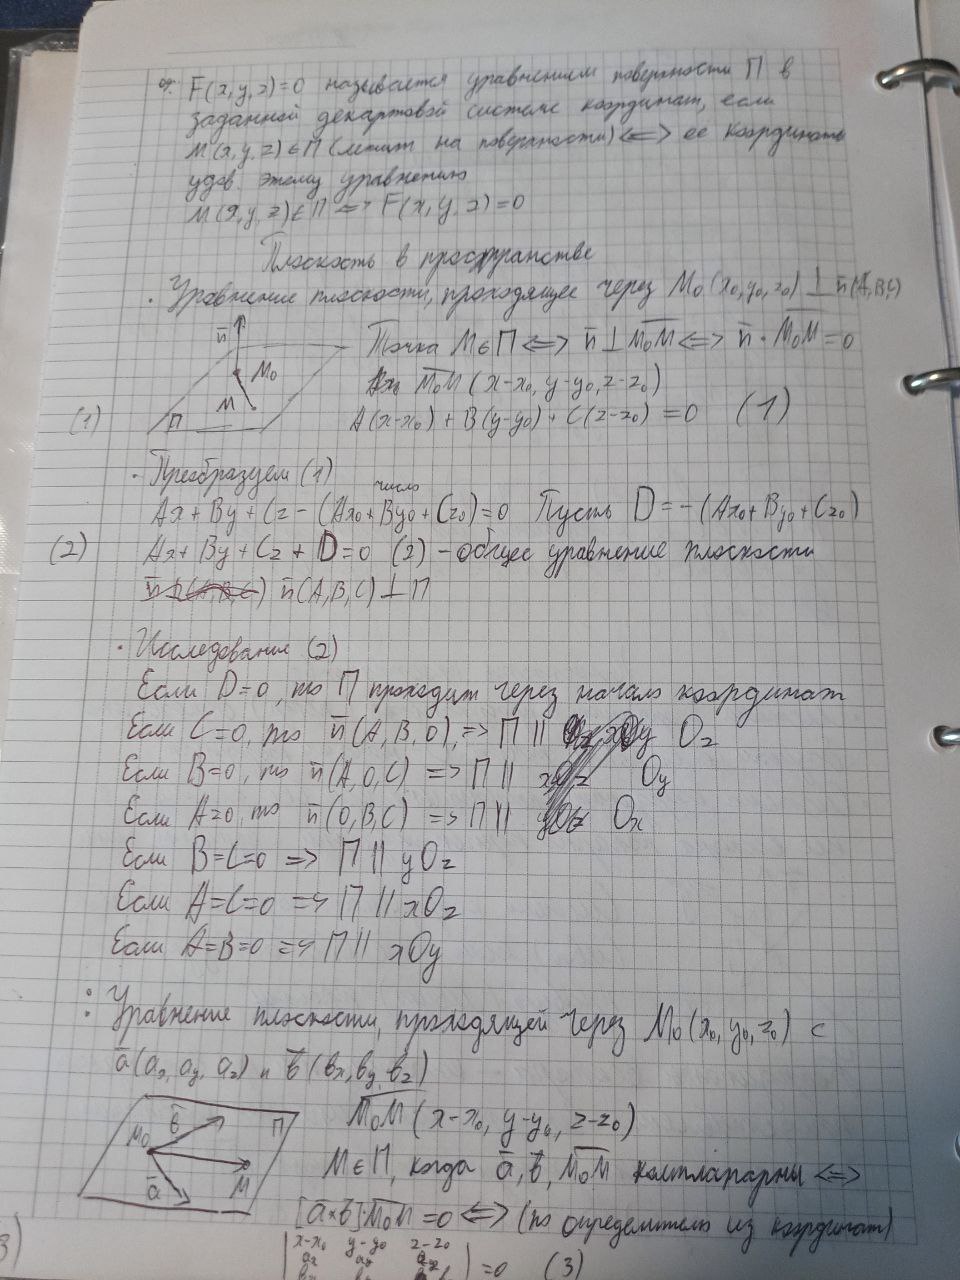 F(x,y,z)=0 называется уравнением поверхности П в
заданной декартовой системе координат, если
M(x,y,z)∈П (лежит на поверхности) <=> её координаты
удов. этому уравнению
M(x,y,z)∈П <=> F(x,y,z)=0
Плоскость в пространстве
· Уравнение плоскости, проходящее через M₀(x₀,y₀,z₀) ⊥ n̄(A,B,C)
n̄ M₀ M П
Точка M∈П <=> n̄ ⊥ M₀M <=> n̄ · M₀M = 0
M₀M (x-x₀, y-y₀, z-z₀)
(1) A(x-x₀) + B(y-y₀) + C(z-z₀) = 0 (1)
· Преобразуем (1)
число
Ax + By + Cz - (Ax₀ + By₀ + Cz₀) = 0 Пусть D = -(Ax₀ + By₀ + Cz₀)
(2) Ax + By + Cz + D = 0 (2) - общее уравнение плоскости
n̄(A,B,C) ⊥ П
· Исследование (2)
Если D=0, то П проходит через начало координат
Если C=0, то n̄(A,B,0), => П || Oz
Если B=0, то n̄(A,0,C) => П || Oy
Если A=0, то n̄(0,B,C) => П || Ox
Если B=C=0 => П || yOz
Если A=C=0 => П || xOz
Если A=B=0 => П || xOy
: Уравнение плоскости, проходящей через M₀(x₀,y₀,z₀) с
ā(aₓ, aᵧ, a_z) и b̄(bₓ, bᵧ, b_z)
M₀ b̄ П ā M
M₀M (x-x₀, y-y₀, z-z₀)
M∈П, когда ā, b̄, M₀M компланарны <=>
[ā×b̄]·M₀M = 0 <=> (по определителю из координат)
3)
| x-x₀ y-y₀ z-z₀ |
| aₓ aᵧ a_z | = 0 (3)